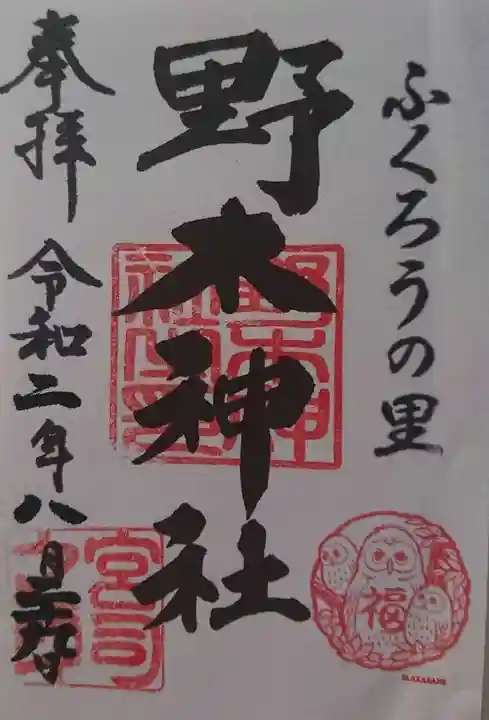 ふくろうの里
野木神社
野木神社印
奉拝 令和二年八月
宮司
福